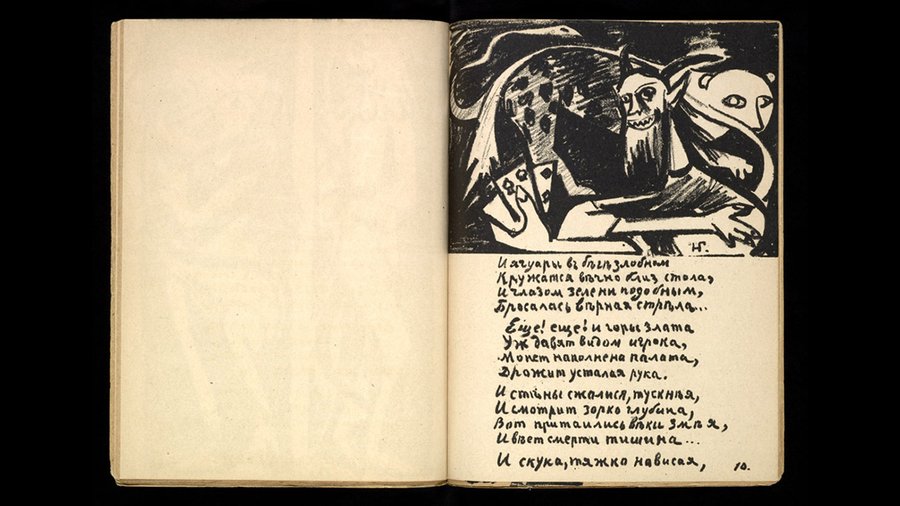 НГ.
И ягуары въ бѣгѣ злобном
Кружатся вѣчно близ стола,
И глазом зелени подобным,
Бросалась вѣрная стрѣла...
Еще! еще! и горы злата
Уж давят видом игрока,
Монет наполнена палата,
Дрожит усталая рука.
И стѣны сжалися, тускнѣя,
И смотрит зорко глубина,
Вот притаились вѣки змѣя,
И вѣет смерти тишина...
И скука, тяжко нависая,
10.